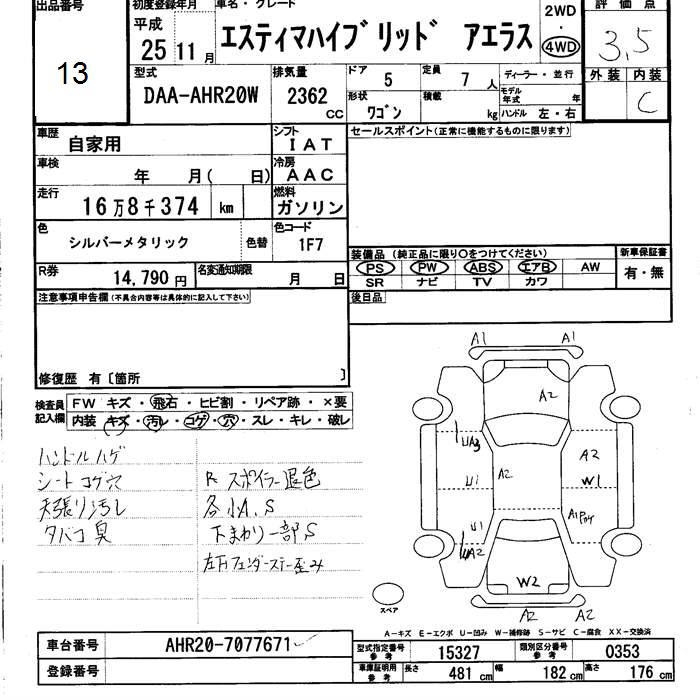 出品番号 初度登録年月 車名・グレード 2WD 評価点
13 平成 エスティマハイブリッド アエラス ・ 3.5
25年11月 4WD
型式 排気量 ドア 5 定員 7人 ディーラー・並行 外装 内装
DAA-AHR20W 2362cc 形状 ワゴン 積載 kg モデル年式 年 C
ハンドル 左・右
車歴 自家用 シフト IAT セールスポイント(正常に機能するものに限ります)
車検 年 月( 日) 冷房 AAC
走行 16万8千374 km 燃料 ガソリン
色 シルバーメタリック 色替 色コード 1F7
装備品 (純正品に限り○をつけてください) 新車保証書
R券 14,790円 名変通知期限 月 日 PS PW ABS エアB AW 有・無
SR ナビ TV カワ
注意事項申告欄(不具合内容等は具体的に記入して下さい) 後日品
修復歴 有〔箇所 〕
検査員記入欄 FW キズ・飛石・ヒビ割・リペア跡・×要
内装 キズ・汚レ・コゲ・穴・スレ・キレ・破レ
ハンドルハゲ
シートコゲ穴 R スポイラー退色
天張り汚レ 各小A.S
タバコ臭 下まわり一部S
左Fフェンダーステー歪み
A1 A1
A2
UA3 A2
U1 A2 W1
U1
A2
W2
A2 A2
スペア
A-キズ E-エクボ U-凹み W-補修跡 S-サビ C-腐食 XX-交換済
車台番号 AHR20-7077671 型式指定番号 参考 15327 類別区分番号 参考 0353
登録番号 車庫証明用 参考 長さ 481cm 幅 182cm 高さ 176cm